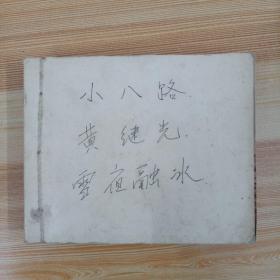 小八路
黄继光
雪夜融冰